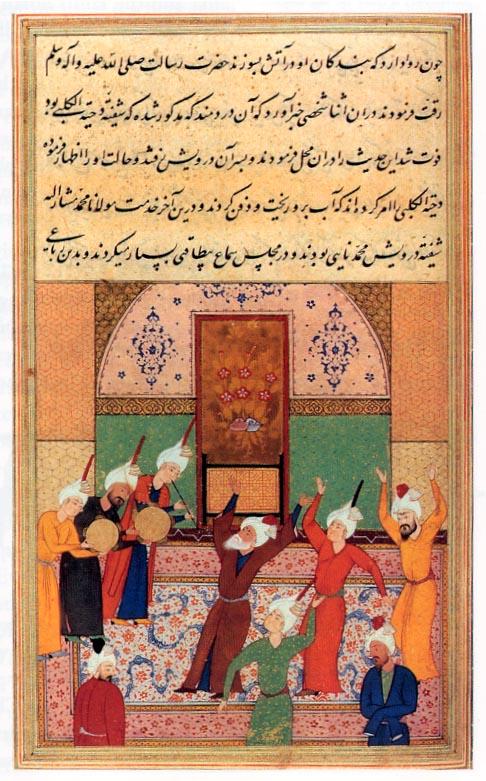 چون روا دارد که بندگان او را بآتش بسوزند حضرت رسالت صلی الله علیه وآله وسلم
رقت فرمودند در آن اثنا شخصی خبر آورد که آن دردمند که مذکور شد که شیفته دحیة الکلبی بود
فوت شد این حدیث را در آن محل فرمودند و بسر آن درویش رفتند و حالت او را اظهار فرموده
دحیة الکلبی را امر کردند که آب برو ریخت و دفن کردند و درین آخر خدمت مولانا محمد مشار الیه
شیفته درویش محمد نایی بودند و در مجلس سماع بیطاقتی بسیار میکردند و بدین رباعی